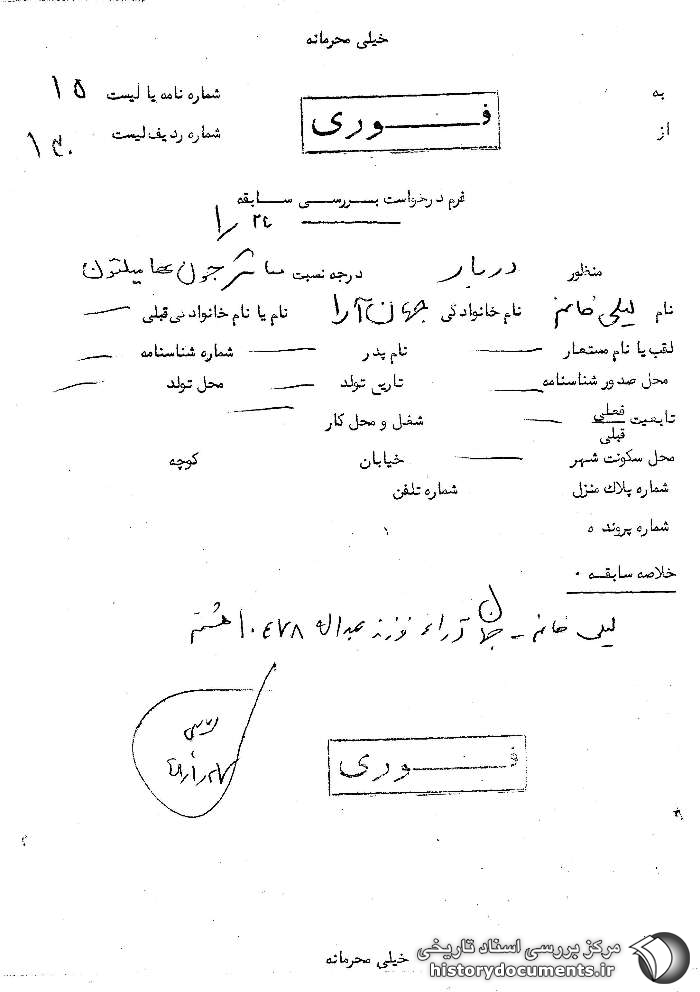 خیلی محرمانه
به
شماره نامه یا لیست ۱۵
فـــوری
از
شماره ردیف لیست ۱۳۰
فرم درخواست بـــررســی ســابقه
منظور دربار درجه نسبت جون هامیلتون
نام لیلی خانم نام خانوادگی جهان آرا نام یا نام خانوادگی قبلی
لقب یا نام مستعار نام پدر شماره شناسنامه
محل صدور شناسنامه تاریخ تولد محل تولد
تابعیت فعلی شغل و محل کار
قبلی
محل سکونت شهر خیابان کوچه
شماره پلاک منزل شماره تلفن
شماره پرونده
خلاصه سابقه
لیلی خانم - جهان آراء فرزند عبداله ۱۰۴۷۸ هشتم
فـــوری
خیلی محرمانه
مرکز بررسی اسناد تاریخی
historydocuments.ir